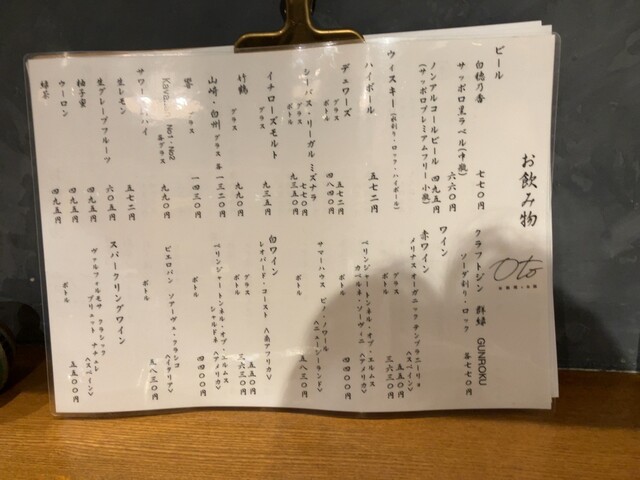 お飲み物
Oto
ビール
白穂乃香 七七〇円
サッポロ黒ラベル(中瓶) 六六〇円
ノンアルコールビール 四九五円
(サッポロプレミアムフリー 小瓶)
ウィスキー(水割り・ロック・ハイボール)
ハイボール 五七二円
デュワーズ
グラス 五七二円
ボトル 四八四〇円
シーバス・リーガル ミズナラ
グラス 七七〇円
ボトル 九三五〇円
イチローズモルト
グラス 九三五円
竹鶴
グラス 九九〇円
山崎・白州 グラス各 一三二〇円
響
グラス 一四三〇円
各グラス 九九〇円
サワー
生レモン 五七二円
生グレープフルーツ 六〇五円
柚子蜜 四九五円
ウーロン 四九五円
緑茶 四九五円
クラフトジン 群緑 GUNROKU
ソーダ割り・ロック 各七七〇円
ワイン
赤ワイン
メリナス オーガニック テンプラニーリョ
〈スペイン〉
グラス 五五〇円
ボトル 三六三〇円
ベリンジャー トンネル・オブ・エルムス
カベルネ・ソーヴィニ 〈アメリカ〉
ボトル 四四〇〇円
サマーハウス ピノ・ノワール
〈ニュージーランド〉
ボトル 五八三〇円
白ワイン
レオパード・コースト 〈南アフリカ〉
グラス 五五〇円
ボトル 三六三〇円
ベリンジャー トンネル・オブ・エルムス
シャルドネ 〈アメリカ〉
ボトル 四四〇〇円
ピエロパン ソアーヴェ・クラシコ
〈イタリア〉
ボトル 五八三〇円
スパークリングワイン
ヴァルフォルモサ クラシック
ブリュット ナチュレ
〈スペイン〉
ボトル 五五〇〇円